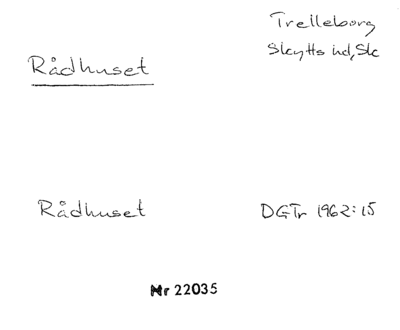 Trelleborg
Skytts hd, Sk
Rådhuset
Rådhuset
DGTr 1962:15
Nr 22035